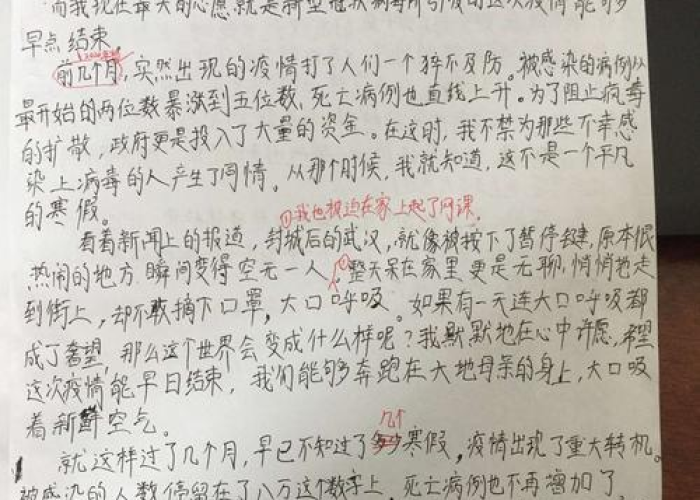 而我现在最大的心愿就是新型冠状病毒所引发的这次疫情能够
早点结束。
前几个月,突然出现的疫情打了人们一个猝不及防。被感染的病例从
最开始的两位数暴涨到五位数,死亡病例也直线上升。为了阻止病毒
的扩散,政府更是投入了大量的资金。在这时,我不禁为那些不幸感
染上病毒的人产生了同情。从那个时候,我就知道,这不是一个平凡
的寒假。
①我也被迫在家上起了网课,
看着新闻上的报道,封城后的武汉,就像被按下了暂停键,原本很
热闹的地方瞬间变得空无一人,①整天呆在家里更是无聊,悄悄地走
到街上,却不敢摘下口罩,大口呼吸。如果有一天连大口呼吸都
成了奢望,那么这个世界会变成什么样呢?我默默地在心中许愿,希望
这次疫情能早日结束,我们能够奔跑在大地母亲的身上,大口吸
着新鲜空气。
几个
就这样过了几个月,早已不知过了多少寒假,疫情出现了重大转机。
被感染的人数停留在了八万这个数字上,死亡病例也不再增加了